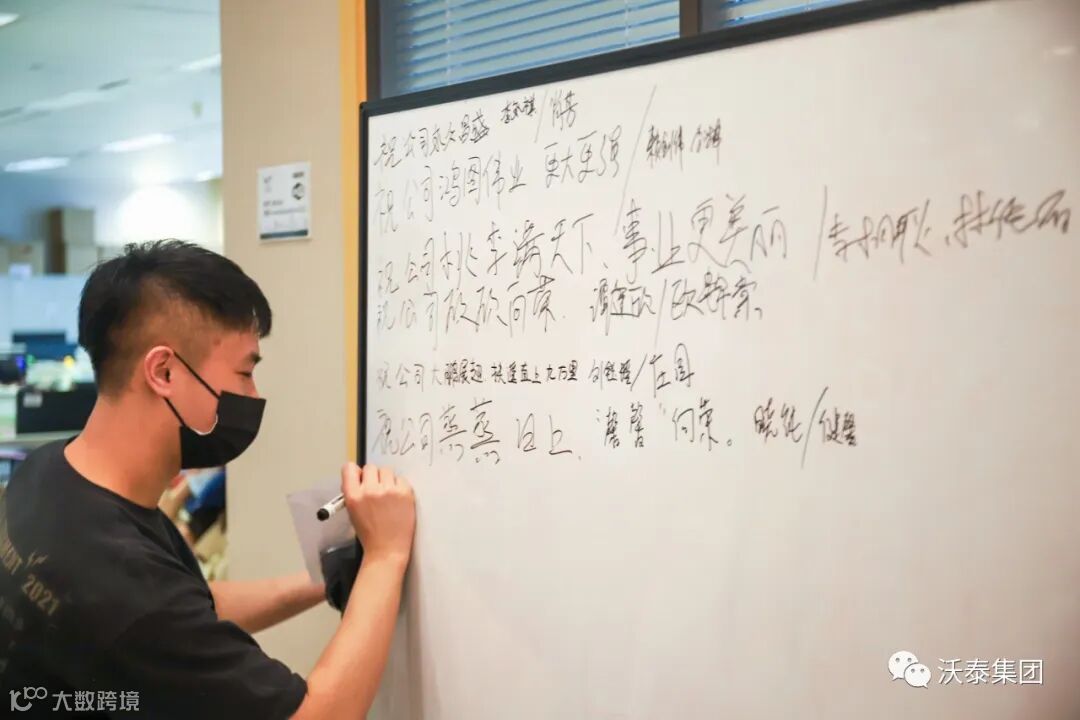 祝公司永久昌盛 /肖芸
祝公司鸿图伟业 更大更强 /
祝公司桃李满天下、事业更美丽 /
祝公司欣欣向荣. /欧
祝公司大鹏展翅 扶遥直上九万里 /庄周
祝公司蒸蒸日上、馨馨"向荣。 晓纯/健馨
MENT 2021
大数跨境
沃泰集团